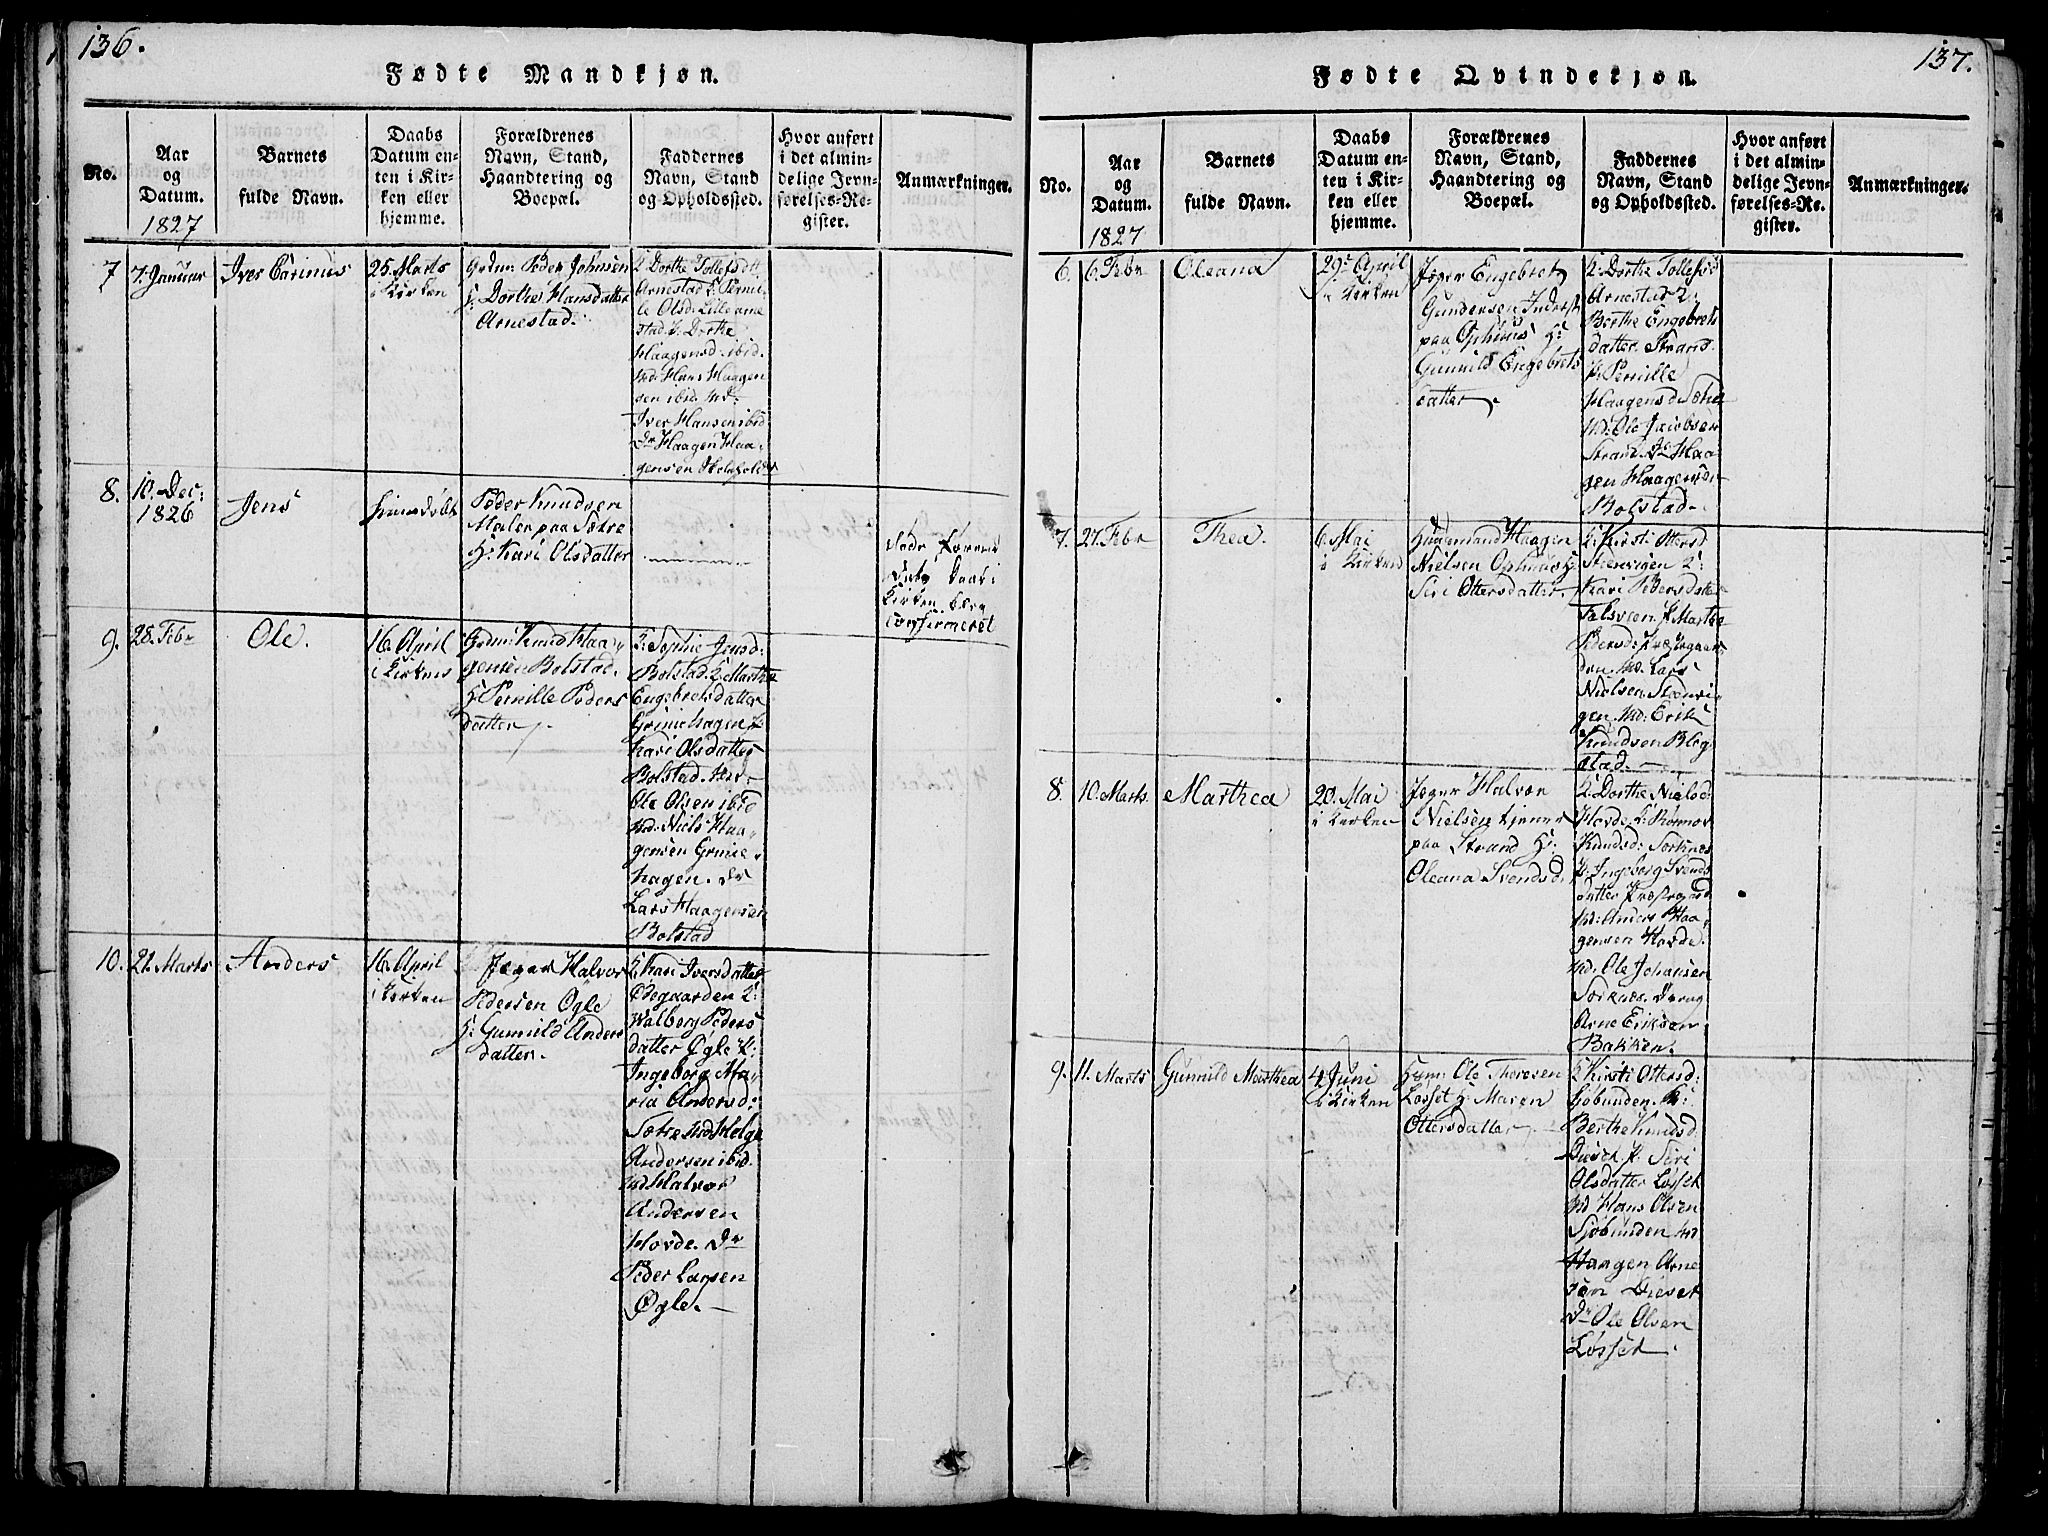 136.
Fødte Mandkjøn.
No.
Aar
og
Datum.
1827
Barnets
fulde Navn.
Daabs
Datum en-
ten i Kir-
ken eller
hjemme.
Forældrenes
Navn, Stand,
Haandtering og
Boepæl.
Faddernes
Navn, Stand
og Opholdssted.
Hvor anført
i det almin-
delige Jevn-
førelses-Re-
gister.
Anmærkninger.
7
7. Januar
Iver Carinus
25. Marts
i Kirken
Grdm: Peder Johnsen
H: Dorthe Hansdatter
Arnestad.
2 Dorthe Tollefsdtt
Arnestad K: Pernil-
le Olsd: Lille arne
stad. P. Dorthe
Haagensd. ibid.
Md: Hans Haagen
sen ibid. Md:
Iver Hansen ibid
Dr Haagen Haa-
gensen Skoleholder
8.
10. Dec:
1826
Jens
hiemedøbt
Peder Knudsen
Maler paa Sætre
H: Kari Olsdatter
døde førend
Daab i
Kirken blev
confirmeret
9.
28. Febr
Ole.
16. April
i Kirken
Grdm: Knud Haa-
gensen Bolstad.
H: Pernille Peders
datter.
K: Sophie Jensd:
Bolstad. K: Marthe
Engebretsdatter
Grinehagen P.
Kari Olsdatter
Bolstad. Md:
Ole Olsen ibid
Md: Niels Haa-
gensen Grine-
hagen. Dr
Lars Haagensen
Bolstad
10.
21. Marts
Anders
16. April
i Kirken
Jæger Halvor
Pedersen Øgle
H: Gunnild Anders
datter.
K: Kari Iversdatter
Ødegaarden K:
Walborg Peders
datter Øgle P:
Ingeborg Ma-
ria Andersd:
Sætre Md Helge
Andersen ibid.
Md Halvor
Andersen
Hovde. Dr
Peder Larsen
Øgle.
137.
Fødte Qvindekjøn.
No.
Aar
og
Datum.
1827
Barnets
fulde Navn.
Daabs
Datum en-
ten i Kir-
ken eller
hjemme.
Forældrenes
Navn, Stand,
Haandtering og
Boepæl.
Faddernes
Navn, Stand
og Opholdssted.
Hvor anført
i det almin-
delige Jevn-
førelses-Re-
gister.
Anmærkninger.
6.
6. Febr
Oleana
29. April
i Kirken
Jæger Engebret
Gundersen Inderst
paa Ophuus H:
Gunnild Engebrets
datter.
K: Dorthe Tollefsd
Arnestad K:
Berthe Engebrets
datter. Strand.
P: Pernille
Haagensd Sætre
Md: Ole Jacobsen
Strand. Dr Haa
gen Haagensen
Bolstad.
7.
27. Febr
Thea.
6. Mai
i Kirken
Huusmand Haagen
Nielsen Ophuus H:
Siri Ottersdatter.
K: Kirsti Ottersd
Steenvigen K:
Kari Pedersdatter
P. Marthe
Pedersd: Præstegaar
den. Md. Lars
Nielsen Steenvi-
gen. Md: Erik
Knudsen Bleg-
stad.
8.
10. Marts.
Marthea
20. Mai
i Kirken
Jæger Halvor
Nielsen tjener
paa Strand H:
Oleana Svendsd.
K: Dorthe Nielsd:
Hovde. K: Rønnov
Knudsd: Sorknes
P: Ingeborg Svends
datter Præstegrd
Md: Anders Haa-
gensen Hovde.
Md. Ole Johansen
Sorknes. Dreng
Arne Eriksen
Bakken.
9.
11. Marts
Gunnild Marthea
4. Juni
i Kirken
Huusm: Ole Thoresen
Løsset H: Maren
Ottersdatter.
K: Kirsti Ottersd:
Søbunden. K:
Berthe Knudsd:
Diiset P. Siri
Olsdatter Løsset
Md Hans Olsen
Sjøbunden Md
Haagen Arne
sen Dieset
Dr Ole Olsen
Løsset.